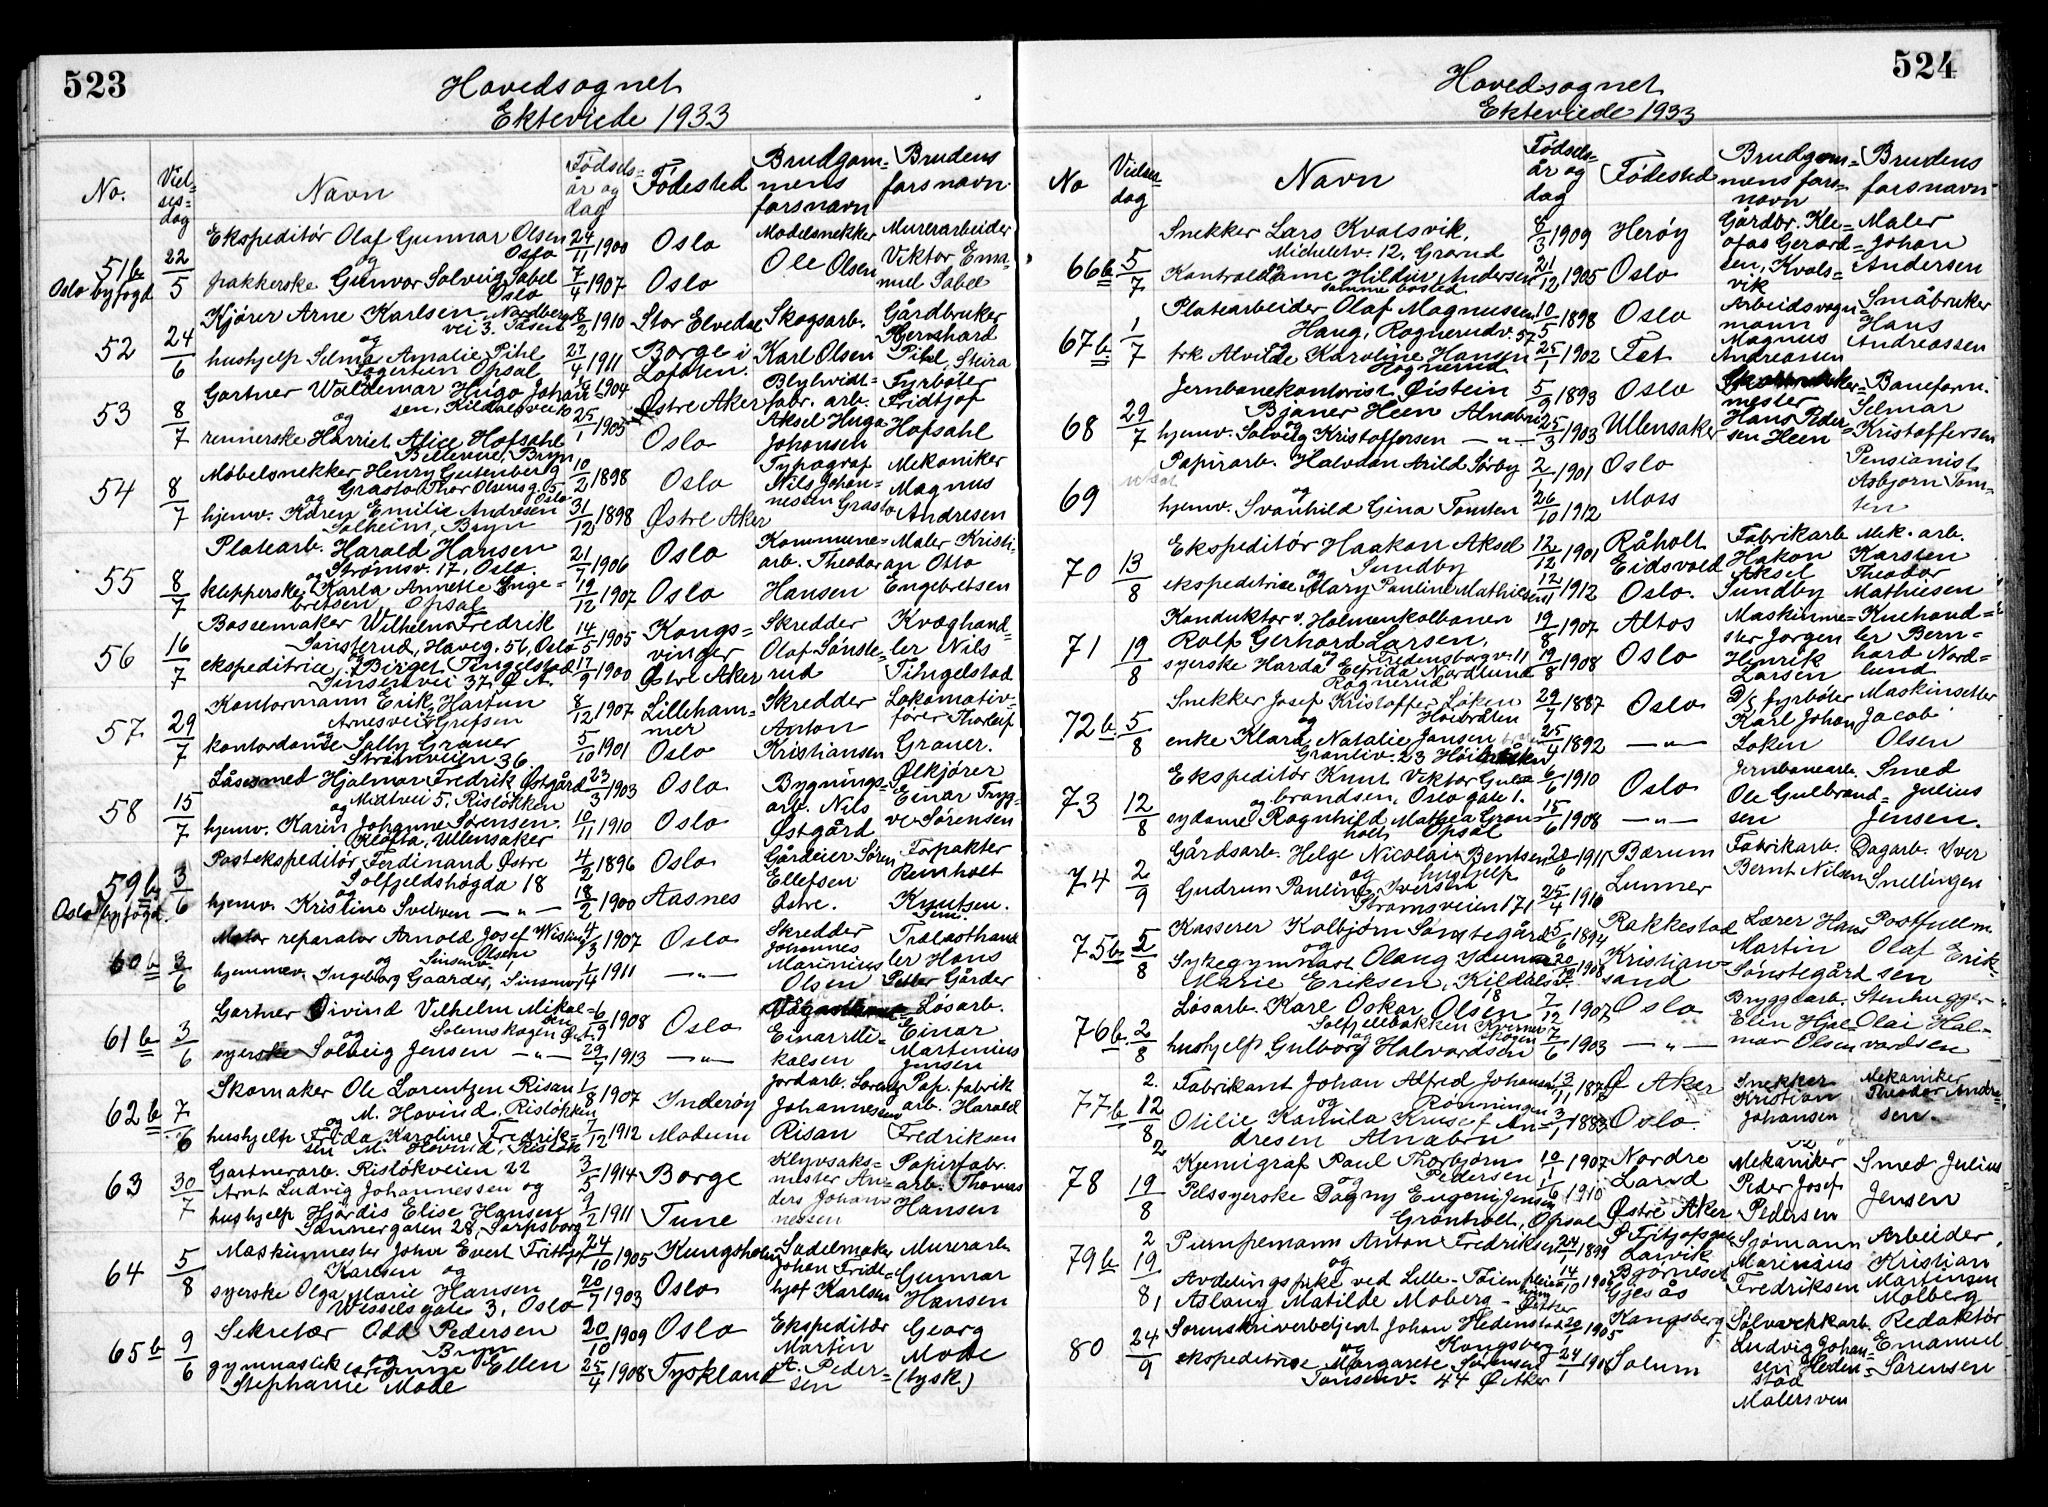 523
Hovedsognet
Ekteviede 1933
No.
Viel-
ses-
dag
Navn
Fødsels-
år og
dag
Fødested
Brudgom-
mens
farsnavn
Brudens
farsnavn
51b
Oslo byfogd
22/5
Ekspeditør Olaf Gunnar Olsen
Oslo
og
pakkerske Gunvor Solveig Sabel
Oslo
24/11 1900
7/4 1907
Oslo
Oslo
Modelsnekker
Ole Olsen
Murerarbeider
Viktor Ema-
nuel Sabel
52
24/6
Kjører Arne Karlsen, Nordberg
vei 3. Tåsen
og
hushjelp Selma Amalie Pihl
Fagertun Opsal
8/2 1910
27/4 1911
Stor Elvedal
Borge i
Lofoten.
Skogsarb.
Karl Olsen
Gårdbruker
Bernhard
Pihl, Steira
53
8/7
Gartner Waldemar Hugo Johan-
sen, Kildalsveien
og
rennerske Harriet Alice Hofsahl
Bellevue, Bryn
1904
25/1 1905
Østre Aker
Oslo
Blyhvidt-
fabr. arb.
Aksel Hugo
Johansen
Fyrbøter
Fridtjof
Hofsahl
54
8/7
Møbelsnekker Henry Gutenberg
Grasto Thor Olsensg. 5
Oslo
og
hjemv. Karen Emilie Andresen
Solheim, Bryn
10/2 1898
31/12 1898
Oslo
Østre Aker
Typograf
Nils Johan-
nessen Grasto
Mekaniker
Magnus
Andresen
55
8/7
Platearb. Harald Hansen
Strømsv. 17, Oslo.
og
klepperske Karla Annette Enge-
bretsen Opsal
21/7 1906
19/12 1907
Oslo
Oslo
Kommune-
arb. Theodor
Hansen
Maler Kristi-
an Otto
Engebretsen
56
16/7
Bøssemaker Wilhelm Fredrik
Sønsterud, Haveg. 56, Oslo
og
ekspeditrice Birget Tingelstad
Sinsenvei 37. Ø. A.
14/5 1905
17/9 1900
Kongs-
vinger
Østre Aker
Skredder
Olaf Sønste-
rud
Kvæghand-
ler Nils
Tingelstad
57
29/7
Kontormann Erik Hartun
Arnesvei Grefsen
og
kontordame Solly Graner
Strømveien 36
8/12 1907
5/10 1901
Lilleham-
mer
Oslo
Skredder
Anton
Kristiansen
Lokomotiv-
fører Thorleif
Graner.
58
15/7
Låsesmed Hjalmar Fredrik Østgård
Midtvei 5. Risløkken
og
hjemv. Karin Johanne Sørensen.
Kløfta, Ullensaker
23/3 1903
10/11 1910
Oslo
Oslo
Bygnings-
arb. Nils
Østgård
Ølkjører
Einar Tryg-
ve Sørensen
59b
Oslo byfogd.
3/6
Postekspeditør Ferdinand Østre
Solfjeldshøgda 18
og
hjemv. Kristine Svelven — „ —
4/2 1896
18/2 1900
Oslo
Aasnes
Gårdeier Søren
Ellefsen
Østre.
Forpakter
Reinholt
Knutsen.
60b
3/6
Motor reparatør Arnold Josef Wisting
Olsen
Sinsenv.
og
hjemmev. Ingeborg Gaarder, Sinsenv.
4/3 1907
1/4 1911
Oslo
— „ —
Skredder
Johannes
Marinius
Olsen
Trælasthand
ler Hans
Petter Gårder
61b
3/6
Gartner Øivind Vilhelm Mikal-
sen
Solemskogen
og
syerske Solveig Jensen — „ —
6/9 1908
29/7 1913
Oslo
— „ —
Einar Mi-
kalsen
Løsarb.
Einar
Martinius
Jensen
62b
7/6
Skomaker Ole Lorentzen Risan
M. Hovind, Risløkken
og
hushjelp Frida Karoline Fredrik-
sen M. Hovind, Risløk
1/8 1907
7/12 1912
Inderøy
Modum
Jordarb. Lorenz
Johannesen
Risan
Pap. fabrik
arb. Harald
Fredriksen
63
30/7
Gartnerarb. Risløkveien 22
Arnt Ludvig Johannessen og
hushjelp Hjørdis Elise Hansen
Sannergaten 28, Sarpsborg
3/5 1914
9/2 1911
Borge
Tune
Klyvsaks-
mester An-
ders Johan-
nessen
Papirfabr.
arb. Thomas
Hansen
64
5/8
Maskinmester John Evert Fritjof
Karlsen og
syerske Olga Marie Hansen
Wesselsgate 3, Oslo
24/10 1905
20/7 1903
Kungsholm
Oslo
Sadelmaker
Johan Fridt-
hjof Karlsen
Murerarb.
Gunnar
Hansen
65b
9/6
Sekretær Odd Pedersen
Bryn
og
gymnastikk Ellen
Stephanie Mode
20/10 1909
25/4 1908
Oslo
Tyskland
Ekspeditør
Martin
A. Peder-
sen
Georg
Mode
(tysk)
524
Hovedsognet
Ekteviede 1933
No
Vielses-
dag
Navn
Fødsels-
år og
dag
Fødested
Brudgom-
mens fars-
navn
Brudens
farsnavn
66b
5/7
Snekker Lars Kvalsvik,
Micheletv. 12, Grand
og
Kontrolldame Hildur Andersen
samme bosted
8/3 1909
21/12 1905
Herøy
Oslo
Gårdbr. Kle-
ofas Gerard-
sen, Kvals-
vik
Maler
Johan
Andersen
67b
1/7
Platearbeider Olaf Magnussen
Haug, Rognerudv. 57
og
frk. Alvilde Karoline Hansen
Rognerud
10/5 1898
25/1 1902
Oslo
Fet
Arbeidsvogn-
mann
Magnus
Andreassen
Småbruker
Hans
Andreassen
68
29/7
Jernbanekontorist Øistein
Bjaner Heen Alnabru
og
hjemv. Solveig Kristoffersen — „ —
5/9 1893
25/3 1903
Oslo
Ullensaker
mester
Hans Peder-
sen Heen
Baneform.
Selmar
Kristoffersen
69
Papirarb. Halvdan Arild Sørby
og
hjemv. Svanhild Gina Tomten
2/1 1901
26/10 1912
Oslo
Moss
Pensionist
Asbjørn Tom-
ten
70
13/8
Ekspeditør Haakon Aksel
Sundby
og
ekspeditrice Mary Pauline Mathiesen
12/12 1901
12/11 1912
Råholt
Eidsvold
Oslo.
Fabrikarb
Hakon
Aksel
Sundby
Mek. arb.
Karsten
Theodor
Mathiesen
71
19/8
Konduktør v. Holmenkolbanen
Rolf Gerhard Larsen,
Fredensborgv. 11
og
syerske Harda Elfrida Nordlund
Rognerud
19/8 1907
19/8 1908
Altos
Oslo
Maskinme-
ster Jørgen
Henrik
Larsen
Kuehand-
ler Bern-
hard Nord-
lund
72b
5/8
Snekker Josef Kristoffer Løken
Høibråten
og
enke Klara Natalie Jansen
Granliv. 23 Høibråten
29/7 1887
25/4 1892
Oslo
— „ —
D/s fyrbøter
Karl Johan
Løken
Maskinsetter
Jacob
Olsen
73
12/8
Ekspeditør Knut Viktor Gul-
brandsen, Oslo gate 1.
og
sydame Ragnhild Mathea Gron-
holt Opsal
6/6 1910
15/6 1908
Oslo
— „ —
Jernbanearb.
Ole Gulbrand-
sen
Smed
Julius
Jensen.
74
2/9
Gårdsarb. Helge Nicolai Bentsen
og hushjelp
Gudrun Pauline Iversen
Strømsveien 171
20/6 1911
25/4 1910
Bærum
Lunner
Fabrikarb.
Bernt Nilsen
Dagarb. Iver
Snellingen
75b
5/8
Kasserer Kolbjørn Sønstegård
og
Sykegymnast Olaug Idunna
Marie Eriksen, Kildals
5/6 1894
20/12 1908
Rakkestad
Kristian-
sand
Lærer Hans
Martin
Sønstegård
Postfullm
Olaf Erik-
sen
76b
2/8
Løsarb. Karl Oskar Olsen
Solfjellbakken 18
og
hushjelp Gulborg Halvardsen
7/12 1907
7/6 1903
Oslo
— „ —
Bryggearb.
Elin Hjal-
mar Olsen
Stenhugger
Olai Hal-
vardsen
77b
2.
12/8
Fabrikant Johan Alfred Johansen
og Rønningen
Otilie Kamila Kruse f. An-
dresen Alnabru
13/11
3/1 1883
Ø Aker
Oslo
Snekker
Kristian
Johansen
Mekaniker
Theodor Andre-
sen.
78
2
19/8
Kjemigraf Paul Thorbjørn
Pedersen
og
Pelssyerske Dagny Eugenie Jensen
Grønholt, Opsal
10/1 1907
1/6 1910
Nordre
Land
Østre Aker
Mekaniker
Peder Josef
Pedersen
Smed Julius
Jensen
79b
2
19/8
Pumpemann Anton Fredriksen
og
Avdelingspike ved Lille-Tøien pleie-
hjem
Aslaug Matilde Moberg - Ø. Aker
24/1 1899
14/10
Larvik
Gjesås
Sjømann
Marinius
Fredriksen
Arbeider,
Kristian
Martinsen
Molberg
80
24/9
Sorenskriverbetjent Johan Hedenstad
og Kongsberg
ekspeditrise Margarete Sørensen
Tonsenv. 44 Ø Aker
20/10 1905
24/1 1908
Kongsberg
Solum
Sølvverkarb.
Ludvig Johan-
sen Heden-
stad
Malersven
Redaktør
Emanuel
Sørensen